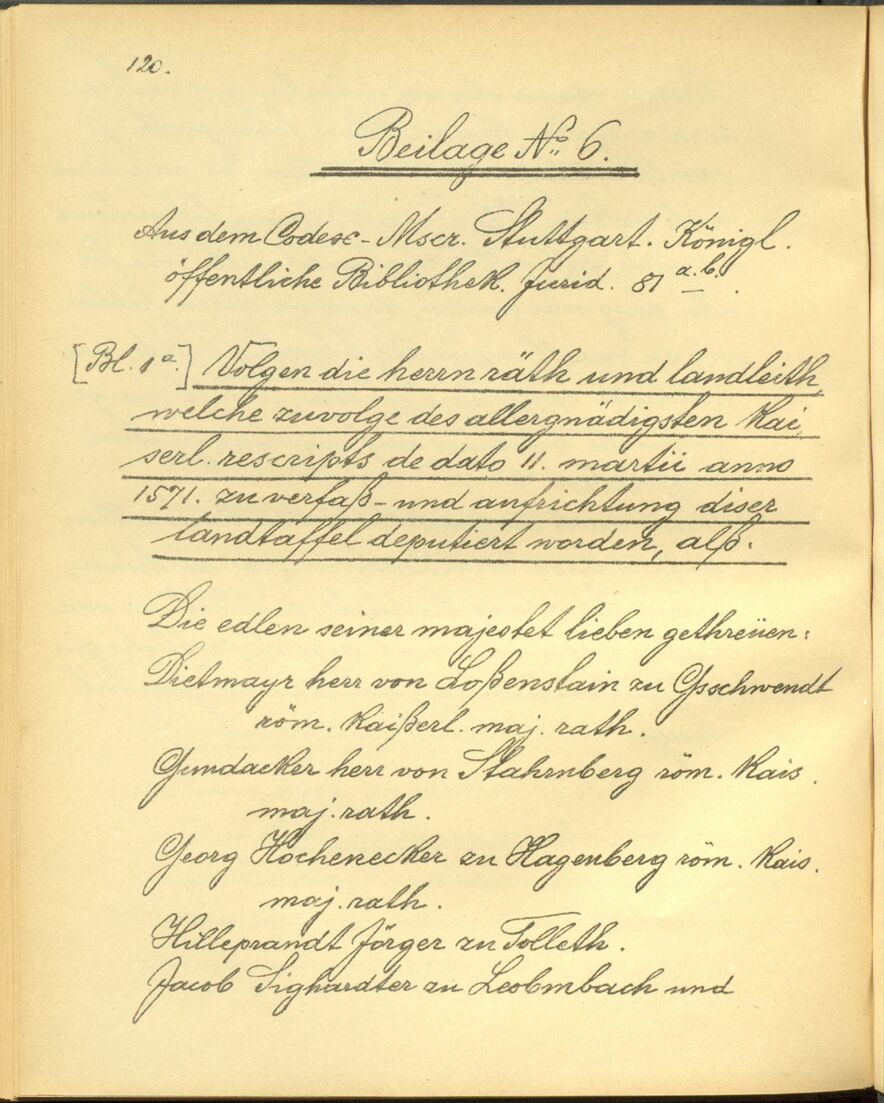 120.
Beilage No. 6.
Aus dem Codex-Mscr. Stuttgart. Königl.
öffentliche Bibliothek. Jurid. 81 a.b.
[Bl. 1a.] Volgen die herrn räth und landleith,
welche zuvolge des allergnädigsten kai
serl. rescripts de dato 11. martii anno
1571. zu verfaß- und aufrichtung diser
landtaffel deputiert worden, alß.
Die edlen seiner majestet lieben gethreüen:
Dietmayr herr von Loßenstain zu Gschwendt
röm. kaißerl. maj. rath.
Gundacker herr von Stahrnberg röm. kais.
maj. rath.
Georg Hochenecker zu Hagenberg röm. kais.
maj. rath.
Hilleprandt Jörger zu Tolleth.
Jacob Sighardter zu Leobmbach und